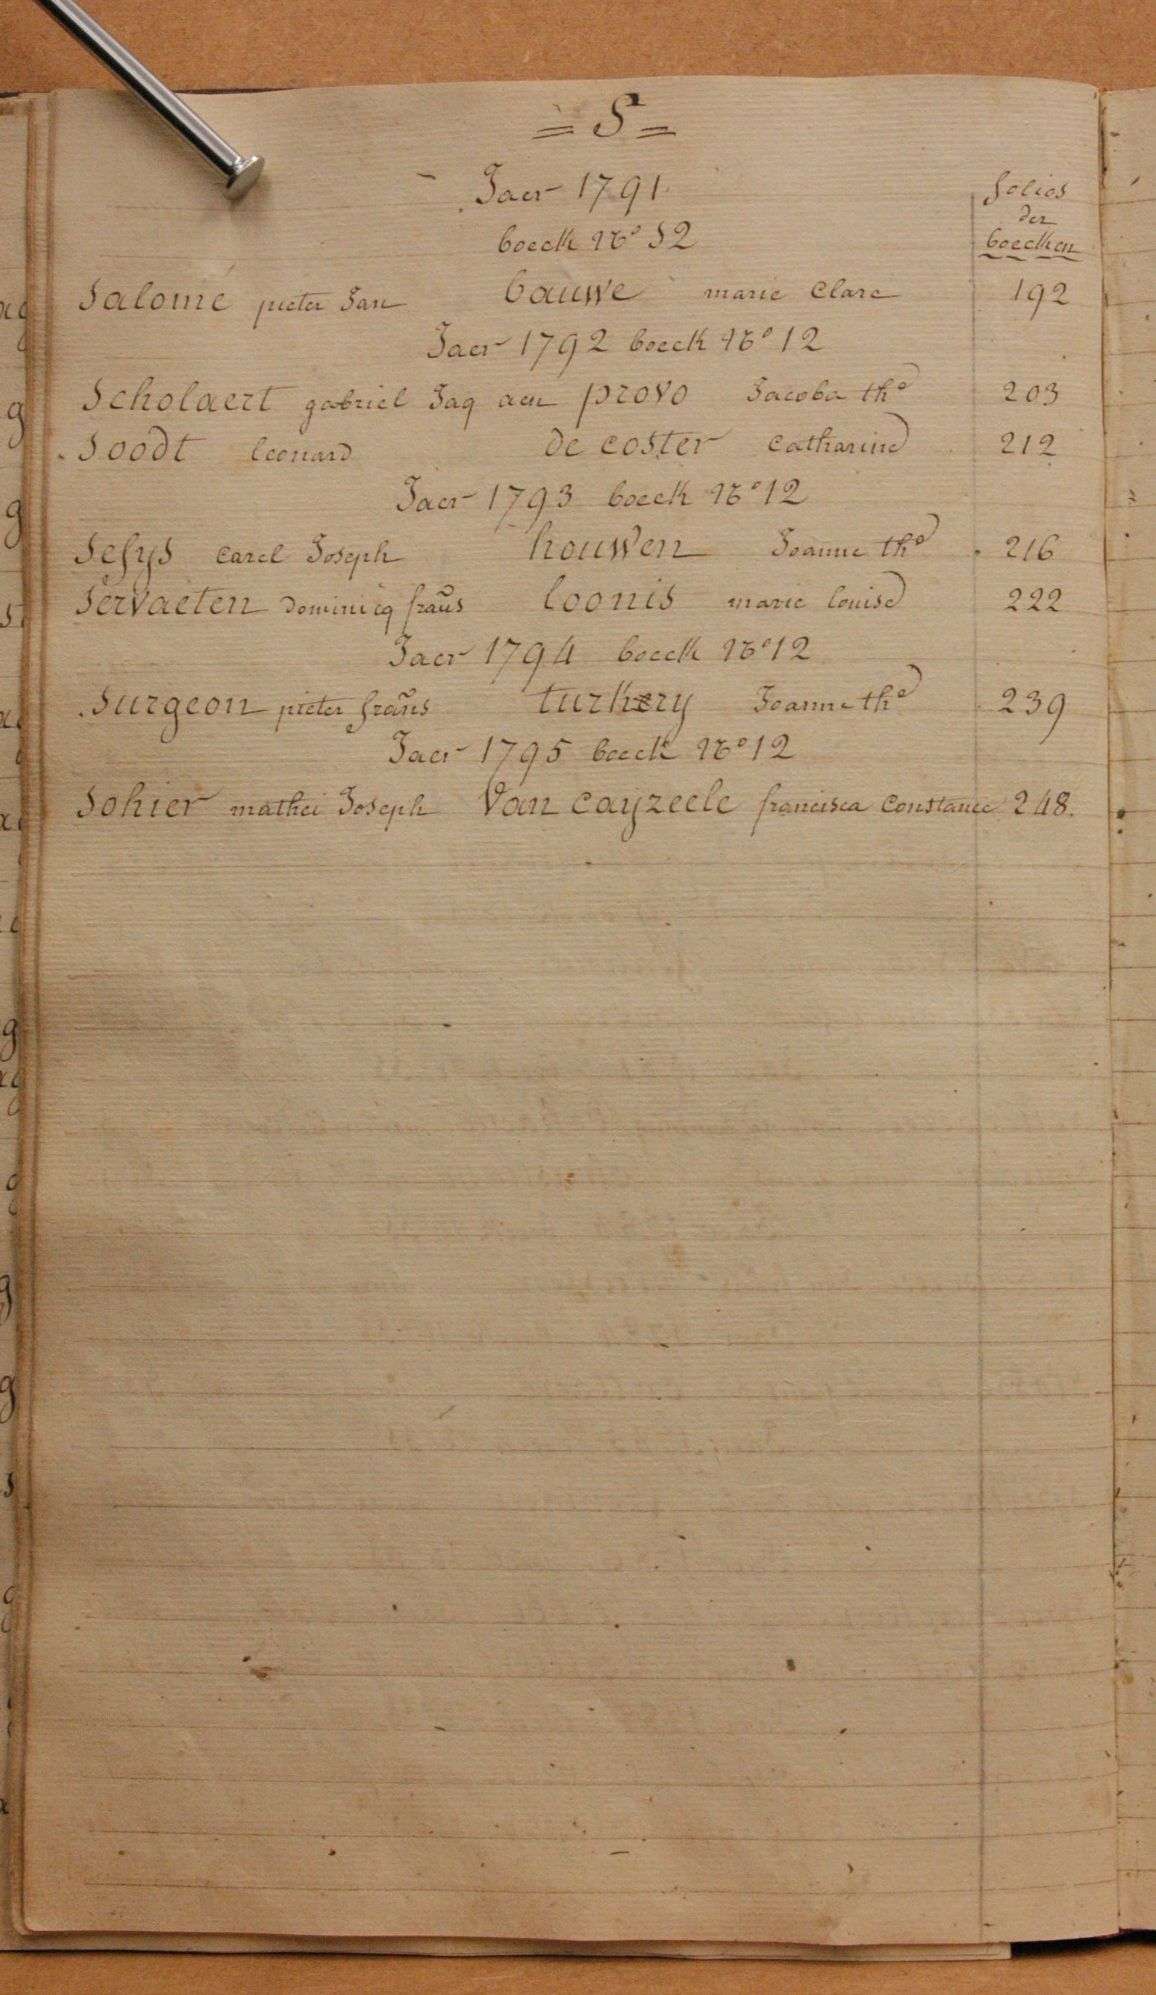 = S =
Jaer 1791
boeck No 12
folios
der
boecken
Salomé pieter Jan bauwe marie Clare 192
Jaer 1792 boeck No 12
Scholaert gabriel Jaq aen provo Jacoba the 203
Soodt leonard de coster catharine 212
Jaer 1793 boeck No 12
Sefys Carel Joseph houwen Joanne the 216
Servaeten dominicq frans loonis marie louise 222
Jaer 1794 boeck No 12
Surgeon pieter frans turkery Joanne the 239
Jaer 1795 boeck No 12
Sohier mathei Joseph Van cayzeele francisca Constance 248.